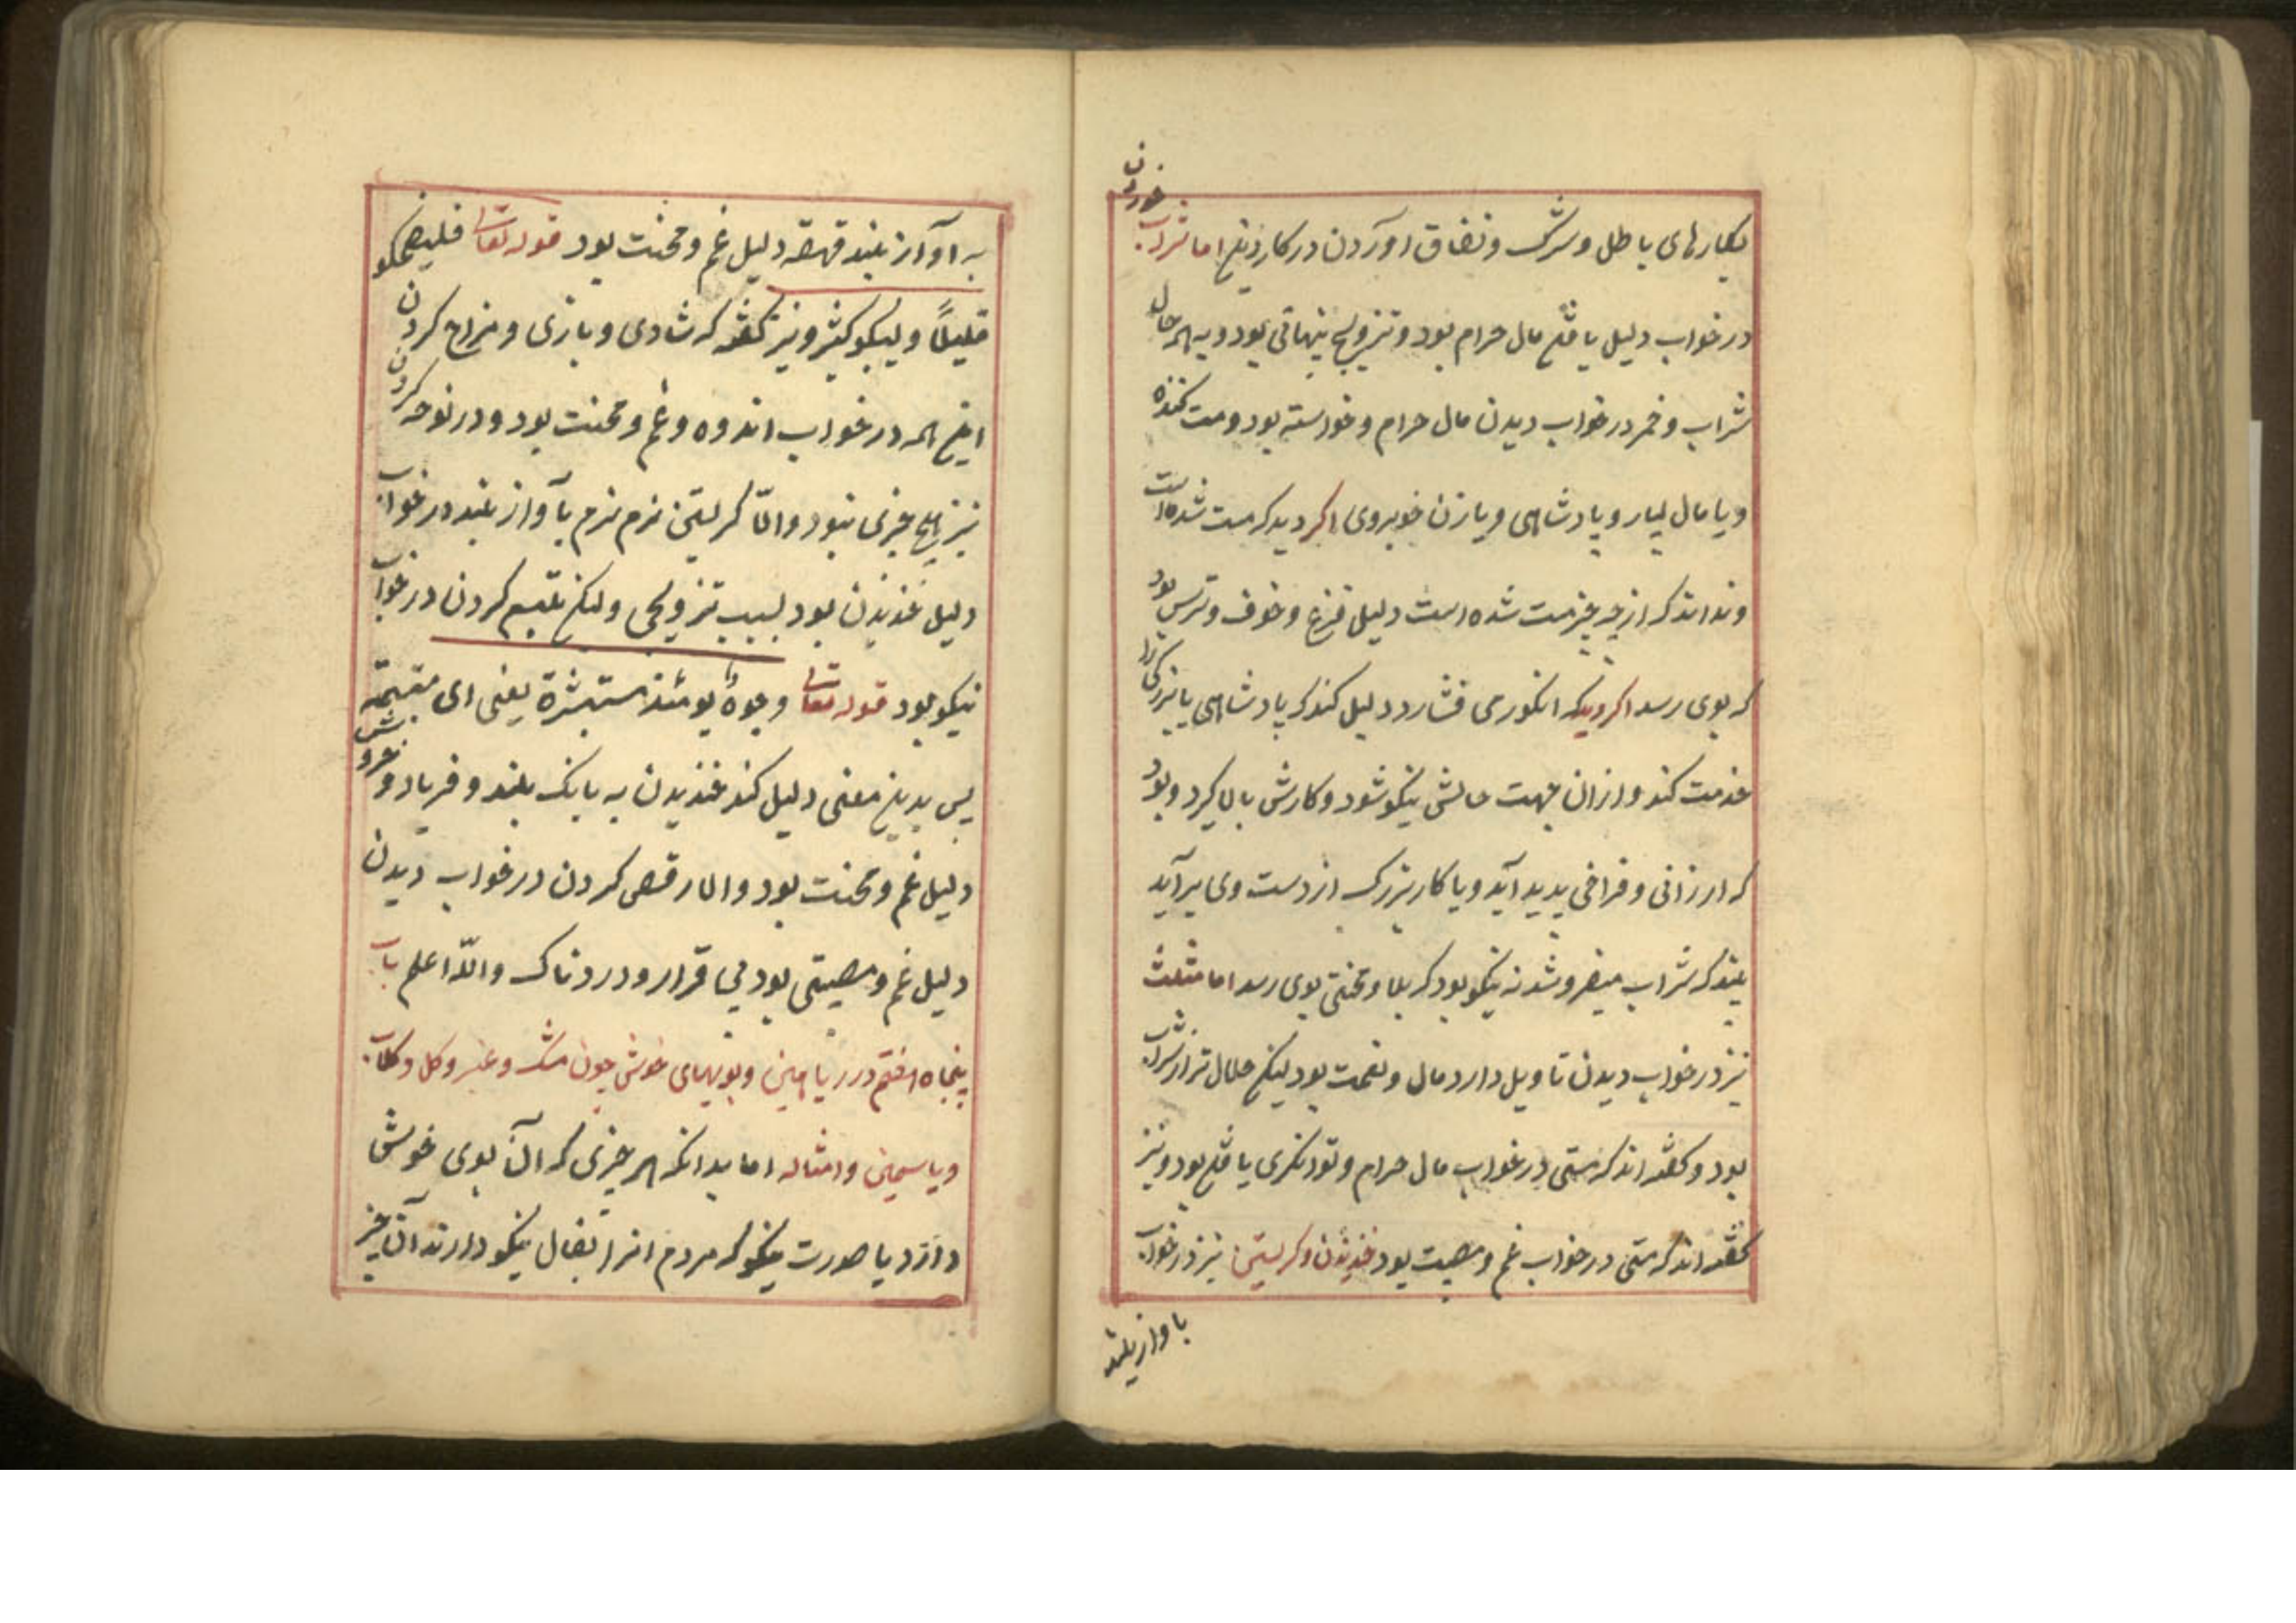 بکارهای باطل و شرک و نفاق آوردن در کار دین اما شراب خوردن
در خواب دلیل یافتن مال حرام بود و تزویج پنهانی بود و بهمه حال
شراب و خمر در خواب دیدن مال حرام و خواسته بود و مست کننده
و یا مال بسیار و پادشاهی و یا زن خوبروی اکر دید که مست شده است
و نداند که از چه چیز مست شده است دلیل فزع و خوف و ترس بود
که بوی رسد اکر دید که انکور می فشارد دلیل کند که پادشاهی یا بزرکی را
خدمت کند و از ان جهت حالش نیکو شود و کارش بالا کیرد و بود
که ارزانی و فراخی پدید آید و یا کار بزرک از دست وی برآید
بیند که شراب میفروشد نه نیکو بود که بلا و محنتی بوی رسد اما مثلث
نیز در خواب دیدن تاویل دارد مال و نعمت بود لیکن حلال تر از شراب
بود و کفته اند که مستی در خواب مال حرام و توانکری یافتن بود و نیز
کفته اند که مستی در خواب غم و مصیبت بود خندیدن و کریستن نیز در خواب
باواز بلند
به اوآاز بلند قهقهه دلیل غم و محنت بود قوله تعالی فلیضحکو
قلیلاً و لیبکو کثیر و نیز کفته که شادی و بازی و مزاح کردن
این همه در خواب اندوه و غم و محنت بود و در نوحه کردن
نیز هیچ چیزی نبود و الّا کریستن نرم نرم بآواز بلند در خواب
دلیل خندیدن بود بسبب تزویجی ولکن تبسم کردن در خواب
نیکو بود قوله تعالی وجوهٌ یومئذ مستبشرة یعنی ای متبسمة
پس بدین معنی دلیل کند خندیدن به بانک بلند و فریاد و خروش
دلیل غم و محنت بود و الا رقص کردن در خواب دیدن
دلیل غم و مصیبتی بود بی قرار و دردناک واللّه اعلم باب
پنجاه هفتم در ریاحین و بویهای خوش چون مشک و عنبر و کل و کلاب
و یاسمین و امثاله اما بدانکه هر چیزی که آن بوی خوش
دارد یا صورت نیکو که مردم انرا بفال نیکو دارند آن چیز